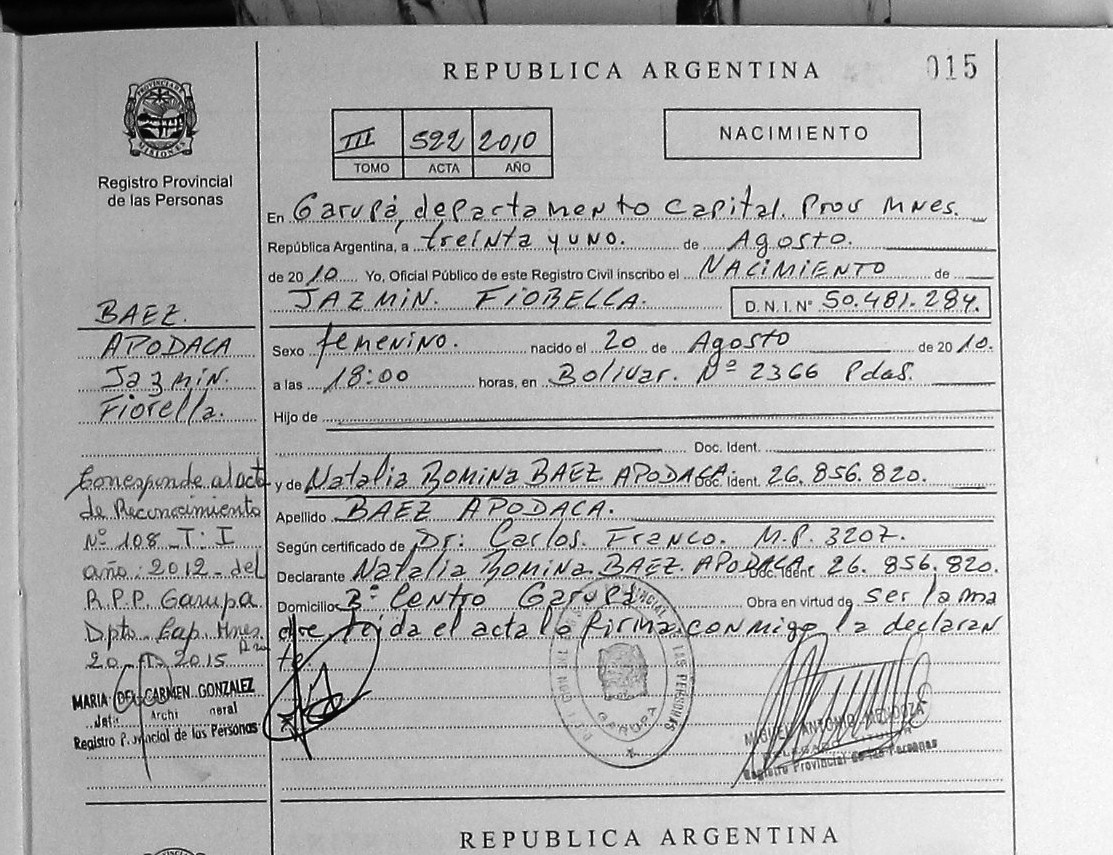 REPUBLICA ARGENTINA
015
PROVINCIA DE MISIONES
Registro Provincial
de las Personas
III 522 2010
TOMO ACTA AÑO
NACIMIENTO
En Garupá, departamento Capital. Prov Mnes.
República Argentina, a treinta y uno. de Agosto.
de 2010 Yo, Oficial Público de este Registro Civil inscribo el NACIMIENTO de
JAZMIN. FIORELLA. D. N. I. Nº 50.481.284.
Sexo femenino. nacido el 20 de Agosto de 2010.
a las 18:00 horas, en Bolivar. Nº 2366 Pdas.
Hijo de
Doc. Ident.
y de Natalia Romina BAEZ APODACA Doc. Ident. 26.856.820.
Apellido BAEZ APODACA.
Según certificado de Dr: Carlos. Franco. M.P. 3207.
Declarante Natalia Romina. BAEZ. APODACA. Doc. Ident. 26. 856. 820.
Domicilio Bº Centro Garupá Obra en virtud de ser la ma
dre leida el acta lo firma conmigo la declaran
te.
BAEZ.
APODACA
Jazmin.
Fiorella.
Corresponde al acta
de Reconocimiento
Nº 108 T: I
año: 2012 - del
R.P.P. Garupa
Dpto. Cap. Mnes.
20 2015
MARIA DEL CARMEN GONZALEZ
Registro Provincial de las Personas
GARUPA
MIGUEL ANTONIO MENDOZA
Registro Provincial de las Personas
REPUBLICA ARGENTINA